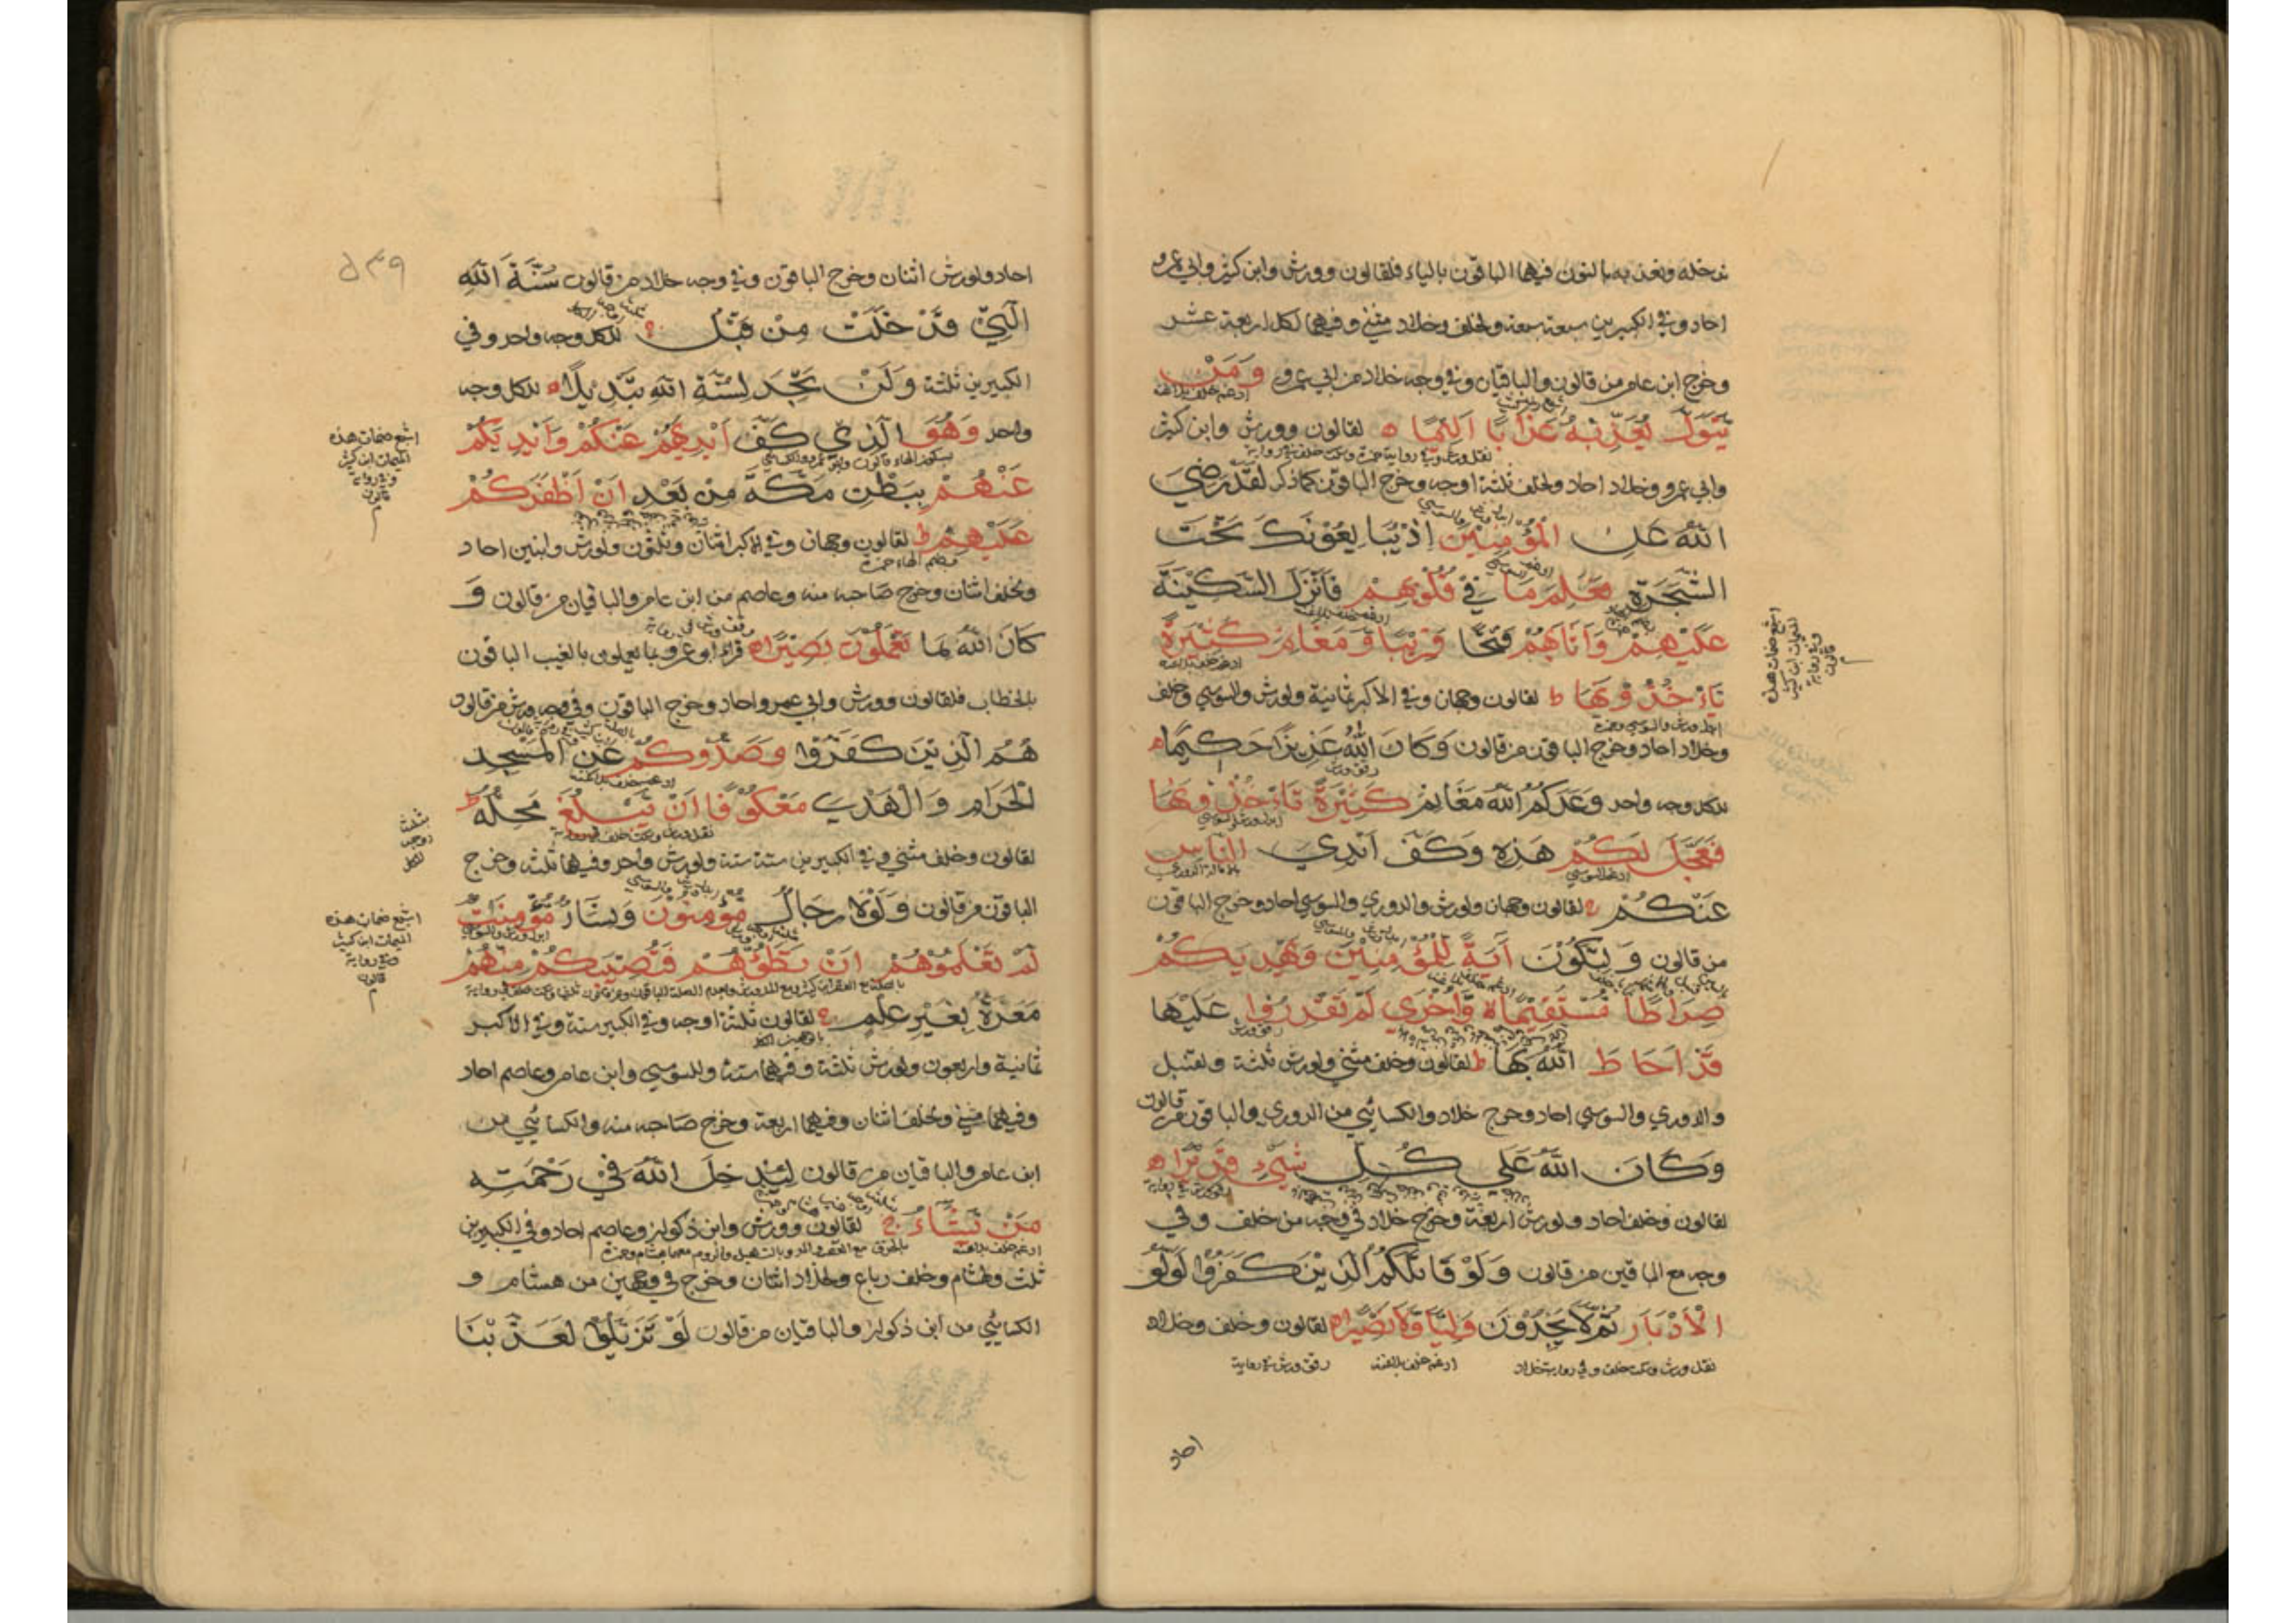 ندخله ونعذبه بالنون فيهما الباقون بالياء فلقالون وورش وابن كثير وابي عمرو
احاد وفي الكبيرين سبعة سبعة ولخلف وخلاد مثنى وفيهما لكل اربعة عشر
وخرج ابن عامر من قالون والباقيان وفي وجه خلاد من ابي عمرو وَمَنْ
ادغم خلف بلا غنة
يَتَوَلَّ يُعَذِّبْهُ عَذَابًا اَلِيْمًا ه لقالون وورش وابن كثير
وابي عمرو وخلاد احاد ولخلف ثلثة اوجه وخرج الباقون كما ذكر لَقَدْ رَضِيَ
اللّٰهُ عَنِ الْمُؤْمِنِيْنَ اِذْ يُبَايِعُوْنَكَ تَحْتَ
الشَّجَرَةِ فَعَلِمَ مَا فِيْ قُلُوْبِهِمْ فَاَنْزَلَ السَّكِيْنَةَ
عَلَيْهِمْ وَاَثَابَهُمْ فَتْحًا قَرِيْبًا وَّمَغَانِمَ كَثِيْرَةً
ادغم خلف بلا غنة
يَاْخُذُوْنَهَا ط لقالون وجهان وفي الاكبر ثمانية ولورش والسوسي وخلف
ابدل ورش والسوسي وحمزة
وخلاد احاد وخرج الباقون من قالون وَكَانَ اللّٰهُ عَزِيْزًا حَكِيْمًا ه
للكل وجه واحد وَعَدَكُمُ اللّٰهُ مَغَانِمَ كَثِيْرَةً تَاْخُذُوْنَهَا
رقق ورش
فَعَجَّلَ لَكُمْ هٰذِهٖ وَكَفَّ اَيْدِيَ النَّاسِ
عَنْكُمْ ج لقالون وجهان ولورش والدوري والسوسي احاد وخرج الباقون
من قالون وَلِتَكُوْنَ اٰيَةً لِّلْمُؤْمِنِيْنَ وَيَهْدِيَكُمْ
صِرَاطًا مُّسْتَقِيْمًا ه وَّاُخْرٰى لَمْ تَقْدِرُوْا عَلَيْهَا
قَدْ اَحَاطَ اللّٰهُ بِهَا ط لقالون وخلف مثنى ولورش ثلثة ولقنبل
والدوري والسوسي احاد وخرج خلاد والكسائي من الدوري والباقون من قالون
وَكَانَ اللّٰهُ عَلٰى كُلِّ شَيْءٍ قَدِيْرًا ه
لقالون وخلف احاد ولورش اربعة وخرج خلاد في وجه من خلف وفي
وجه مع الباقين من قالون وَلَوْ قَاتَلَكُمُ الَّذِيْنَ كَفَرُوْا لَوَلَّوُا
الْاَدْبَارَ ثُمَّ لَا يَجِدُوْنَ وَلِيًّا وَّلَا نَصِيْرًا ه لقالون وخلف وخلاد
نقل ورش وسكت خلف وفي رواية خلاد ادغم خلف بلا غنة رقق ورش في رواية
احاد
اشبع ضمات هذه
الميمات ابن كثير
وفي رواية
قالون
٥٣٩
احاد ولورش اثنان وخرج الباقون وفي وجه خلاد من قالون سُنَّةَ اللّٰهِ
الَّتِيْ قَدْ خَلَتْ مِنْ قَبْلُ ج للكل وجه واحد وفي
الكبيرين ثلثة وَلَنْ تَجِدَ لِسُنَّةِ اللّٰهِ تَبْدِيْلًا ه للكل وجه
واحد وَهُوَ الَّذِيْ كَفَّ اَيْدِيَهُمْ عَنْكُمْ وَاَيْدِيَكُمْ
عَنْهُمْ بِبَطْنِ مَكَّةَ مِنْ بَعْدِ اَنْ اَظْفَرَكُمْ
عَلَيْهِمْ ط لقالون وجهان وفي الاكبر اثنان وثلثون ولورش ولبنين احاد
بضم الهاء حمزة
ولخلف اثنان وخرج صاحبه منه وعاصم من ابن عامر والباقيان من قالون وَ
كَانَ اللّٰهُ بِمَا تَعْمَلُوْنَ بَصِيْرًا ه قراء ابو عمرو بما يعملون بالغيب الباقون
بالخطاب فلقالون وورش وابي عمرو احاد وخرج الباقون وفي وجه ورش من قالون
هُمُ الَّذِيْنَ كَفَرُوْا وَصَدُّوْكُمْ عَنِ الْمَسْجِدِ
الْحَرَامِ وَالْهَدْيَ مَعْكُوْفًا اَنْ يَّبْلُغَ مَحِلَّهٗ ط
لقالون وخلف مثنى وفي الكبيرين ستة ستة ولورش واحد وفيهما ثلثة وخرج
الباقون من قالون وَلَوْلَا رِجَالٌ مُّؤْمِنُوْنَ وَنِسَاءٌ مُّؤْمِنٰتٌ
لَّمْ تَعْلَمُوْهُمْ اَنْ تَطَئُوْهُمْ فَتُصِيْبَكُمْ مِّنْهُمْ
مَّعَرَّةٌ بِغَيْرِ عِلْمٍ ج لقالون ثلثة اوجه وفي الكبير ستة وفي الاكبر
ثمانية واربعون ولورش ثلثة وفيهما ستة وللسوسي وابن عامر وعاصم احاد
وفيهما مثنى ولخلف اثنان وفيهما اربعة وخرج صاحبه منه والكسائي من
ابن عامر والباقيان من قالون لِيُدْخِلَ اللّٰهُ فِيْ رَحْمَتِهٖ
مَنْ يَّشَاءُ ج لقالون وورش وابن ذكوان وعاصم احاد وفي الكبيرين
ادغم خلف بلا غنة
ثلث ولهشام وخلف رباع ولخلاد اثنان وخرج في وجهين من هشام و
الكسائي من ابن ذكوان والباقيان من قالون لَوْ تَزَيَّلُوْا لَعَذَّبْنَا
اشبع ضمات هذه
الميمات ابن كثير
وفي رواية
قالون
اشبع ضمات هذه
الميمات ابن كثير
وفي رواية
قالون